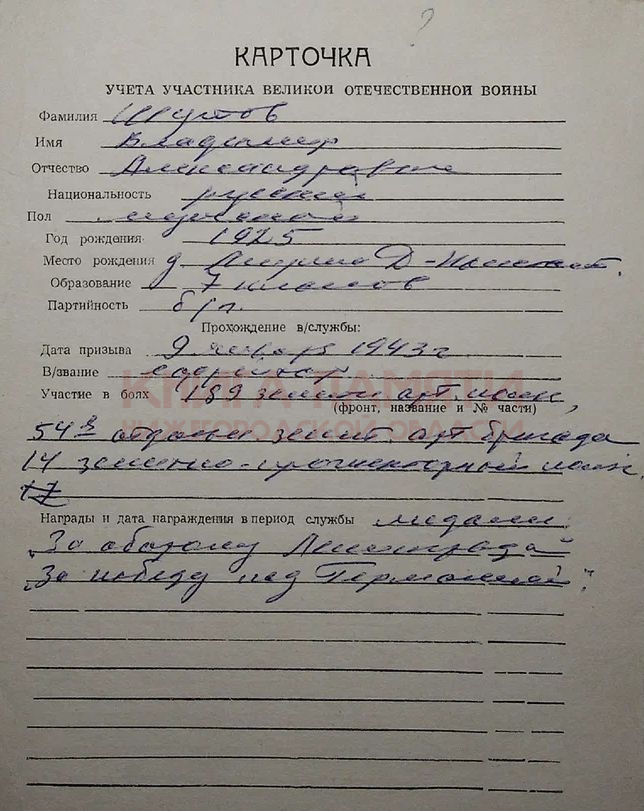 КАРТОЧКА
УЧЕТА УЧАСТНИКА ВЕЛИКОЙ ОТЕЧЕСТВЕННОЙ ВОЙНЫ
Фамилия Шутов
Имя Владимир
Отчество Александрович
Национальность русский
Пол мужской
Год рождения 1925
Место рождения д.
Образование 7 классов
Партийность б/п.
Прохождение в/службы:
Дата призыва 9 января 1943 г
В/звание ефрейтор
Участие в боях 189 зенитн арт. полк,
(фронт, название и № части)
54я отдельн зенит. арт бригада
14 зенитно-прожекторный полк.
17
Награды и дата награждения в период службы медали
„За оборону Ленинграда"
„За победу над Германией"
КНИГА ПАМЯТИ
НИЖЕГОРОДСКОЙ ОБЛАСТИ